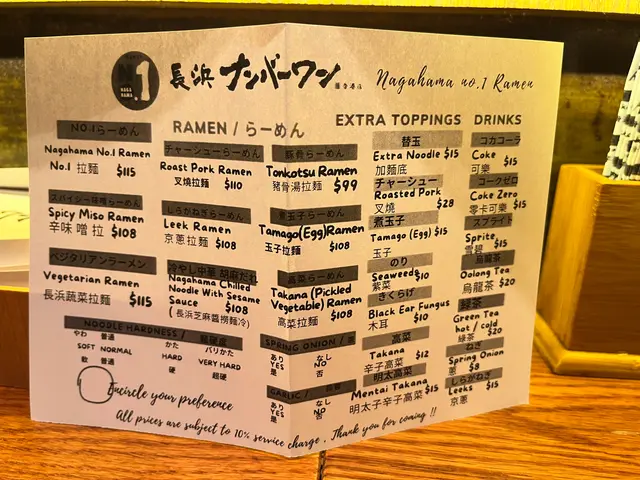 No.1
NAGA
HAMA
長浜 ナンバーワン
Nagahama no.1 Ramen
RAMEN / らーめん
NO.1らーめん
Nagahama No.1 Ramen
No.1 拉麵 $115
スパイシー味噌らーめん
Spicy Miso Ramen
辛味 噌 拉 $108
ベジタリアンラーメン
Vegetarian Ramen
長浜蔬菜拉麵 $115
チャーシューらーめん
Roast Pork Ramen
叉燒拉麵 $110
しらがねぎらーめん
Leek Ramen
京蔥拉麵 $108
冷やし中華 胡麻だれ
Nagahama Chilled
Noodle With Sesame
Sauce $108
(長浜芝麻醬撈麵冷)
豚骨らーめん
Tonkotsu Ramen
豬骨湯拉麵 $99
煮玉子らーめん
Tamago(Egg)Ramen
玉子拉麵 $108
高菜らーめん
Takana (Pickled
Vegetable) Ramen
高菜拉麵 $108
NOODLE HARDNESS / 麵硬度
やわ 普通 かた バリかた
SOFT NORMAL HARD VERY HARD
軟 普通 硬 超硬
SPRING ONION / 蔥
あり なし
YES NO
是 否
GARLIC /
あり なし
YES NO
是 否
EXTRA TOPPINGS
替玉
Extra Noodle $15
加麵底
チャーシュー
Roasted Pork
叉燒 $28
煮玉子
Tamago (Egg) $15
玉子
のり
Seaweeds $10
紫菜
きくらげ
Black Ear Fungus
木耳 $10
高菜
Takana
辛子高菜 $12
明太高菜
Mentai Takana $15
明太子辛子高菜
DRINKS
コカコーラ
Coke
可樂 $15
コークゼロ
Coke Zero
零卡可樂 $15
スプライト
Sprite
雪碧 $15
烏龍茶
Oolong Tea
烏龍茶 $20
緑茶
Green Tea
hot / cold
綠茶 $20
ねぎ
Spring Onion
蔥 $8
しらがねぎ
Leeks $15
京蔥
Encircle your preference
All prices are subject to 10% service charge . Thank you for coming !!